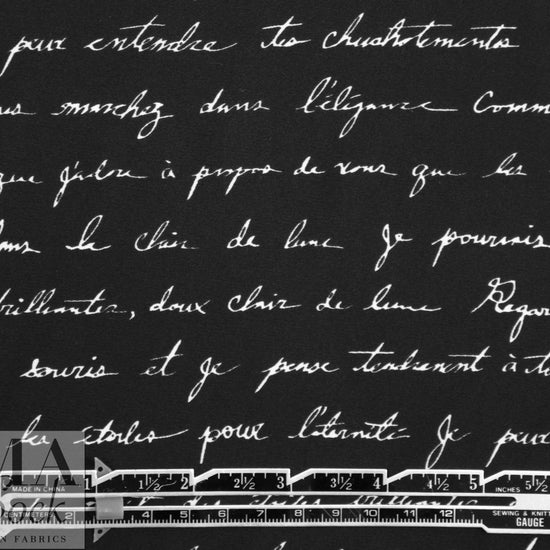 peux entendre tes chuchotements
us marchez dans l'élégance Comm
que j'adore à propos de vous que les
dans la clair de lune Je pourrais
brillantes, doux clair de lune Regar
souris et je pense tendrement à to
les étoiles pour l'éternité Je peux
MADE IN CHINA 1 1½ 2 2½ 3 3½ 4 4½ 5 INCHES 5½
des étoiles brillantes
CENTIMETERS 2 3 4 5 6 7 8 9 10 11 12 SEWING & KNITT GAUGE
N FABRICS